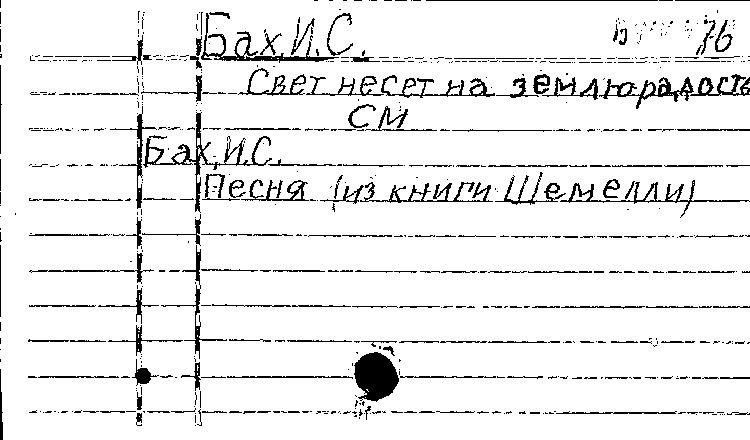 Бах, И.С. 76
Свет несет на землю радость
СМ
Бах, И.С.
Песня (из книги Шемелли)